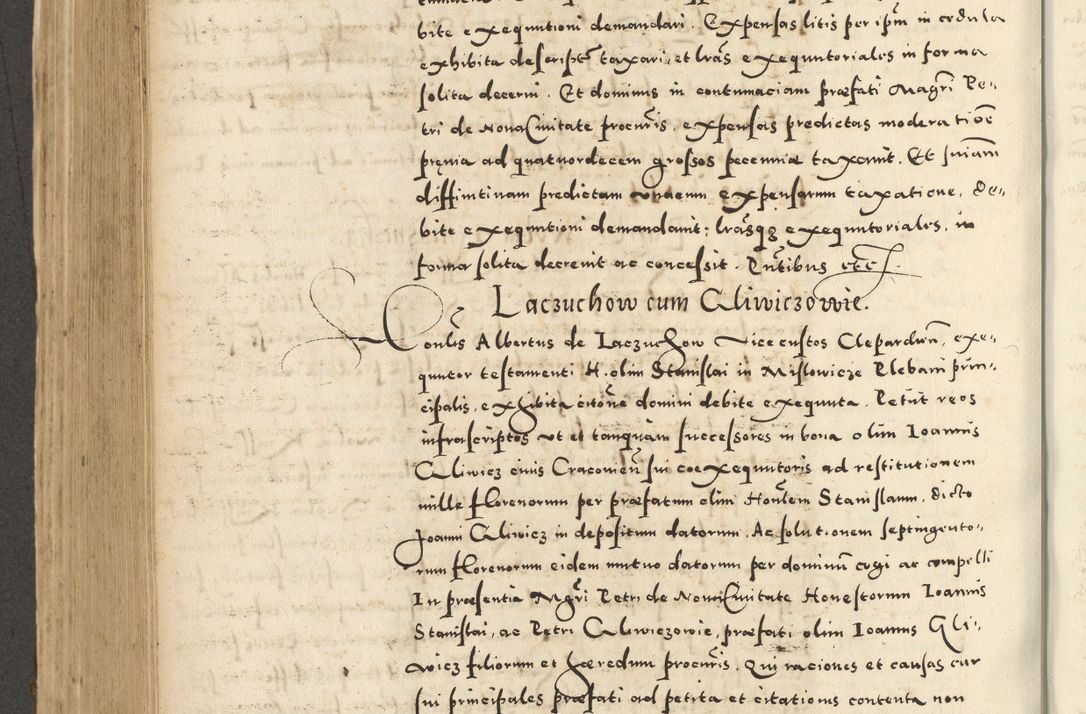 bite exequutioni demandari. Expensas litis per ipm̃ in cedula
exhibita descript̃ taxari, et lrãs exequutoriales in forma
solita decerni. Et dominus in contumaciam præfati Magrĩ Pe„
tri de Nova Civitate procurĩs, expensas predictas moderatiõe
prẹvia ad quatuordecem grossos pecuniæ taxavit. Et sniam̃
diffinitivam predictam unacum expensarum taxatione, de„
bite exequutioni demandavit: lrãsqꝫ exequutoriales, in
forma solita decrevit ac concessit. Pn̄tibus etc.
Laczuchow cum Gliwiczowie.
Honlĩs Albertus de Laczuchow Vicecustos Clepardien̄, exe„
quutor testamenti H. olim Stanislai in Mislowicze Plebani prin„
cipalis, exhibita citõne domini debite exequuta. Petiit reos
infrascriptos ut et tanquam successores in bona olim Ioannis
Gliwicz civis Cracovien̄ sui coexequutoris ad restitutionem
mille florenorum per præfatum olim Honlẽm Stanislaum, dicto
Joanni Gliwicz in depositum datorum. Ac solutionem septingento„
rum florenorum eidem mutuo datorum per dominū cogi ac compelli
In præsentia Mgrĩ Petri de Nova Civitate Honestorum Ioannis
Stanislai, ac Petri Gliwiczowie, præfati olim Ioannis Gli„
wicz filiorum et hæredum procurĩs. Qui raciones et causas cur
sui principales præfati ad petita et citationis contenta non